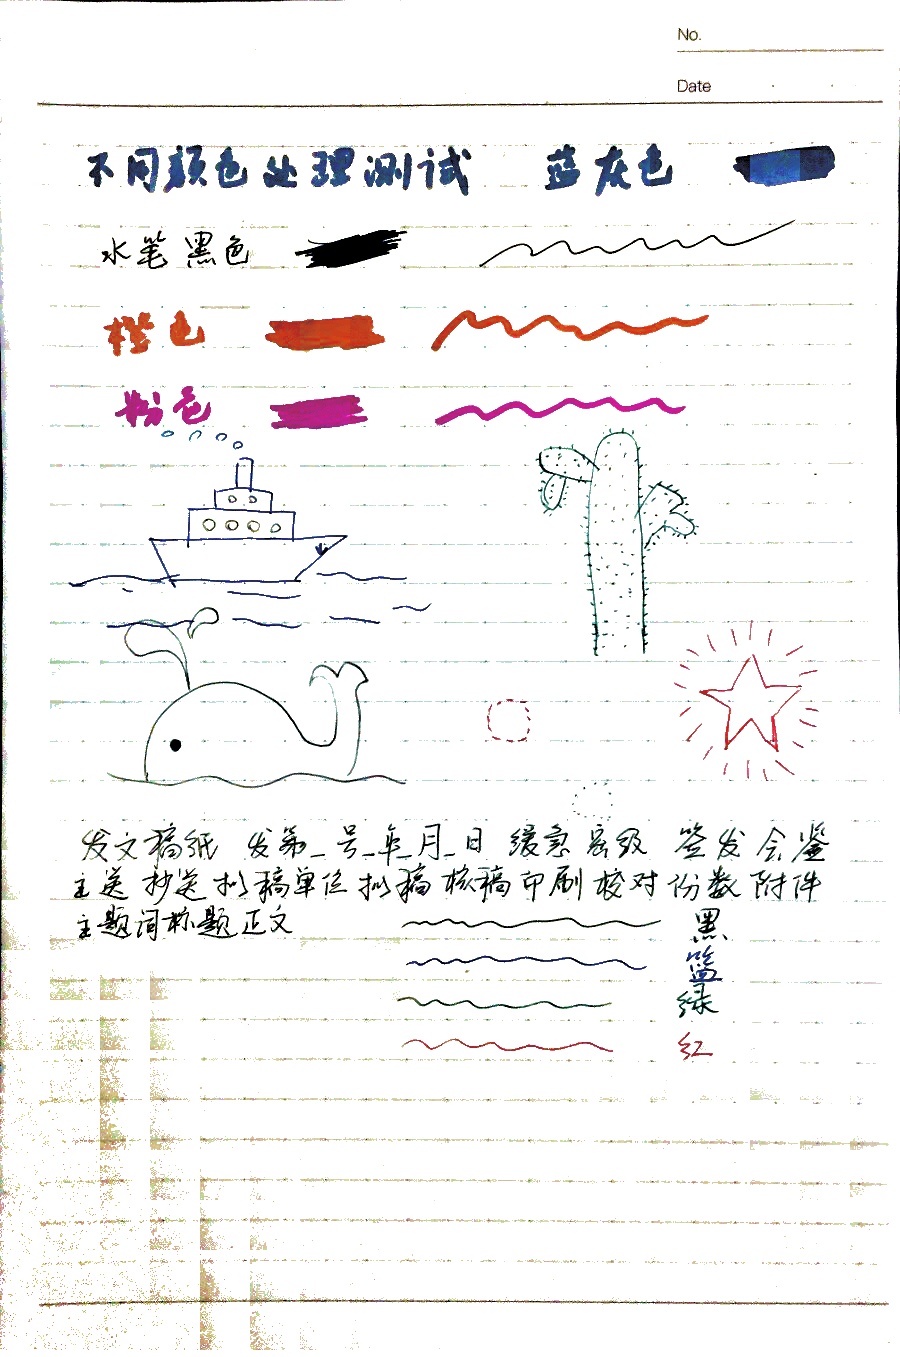 No.
Date
不同颜色处理测试 蓝灰色
水笔黑色
橙色
粉色
发文稿纸 发第_号_年_月_日 缓急 密级 签发 会鉴
主送 抄送 拟稿单位 拟稿 核稿 印刷 校对 份数 附件
主题词 标题 正文
黑
篮
绿
红